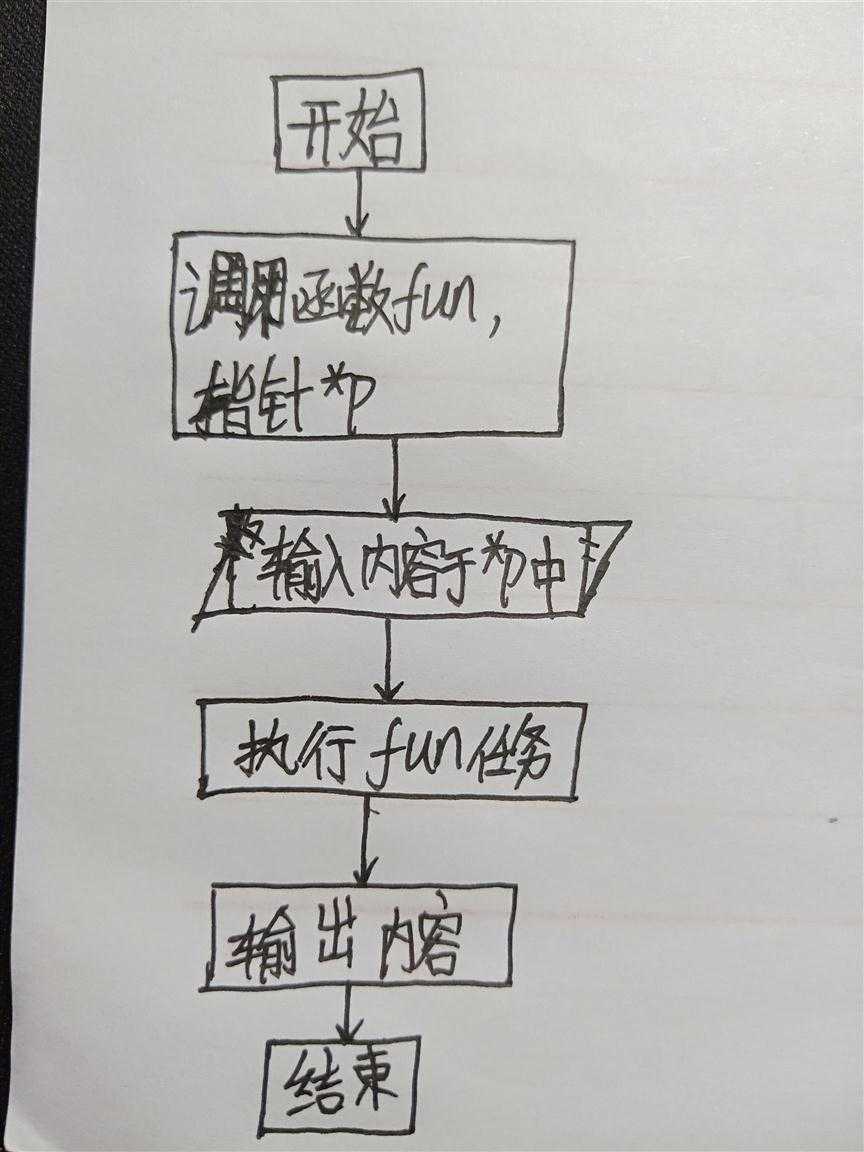 开始
调用函数fun,
指针*p
输入内容于*p中
执行fun任务
输出内容
结束